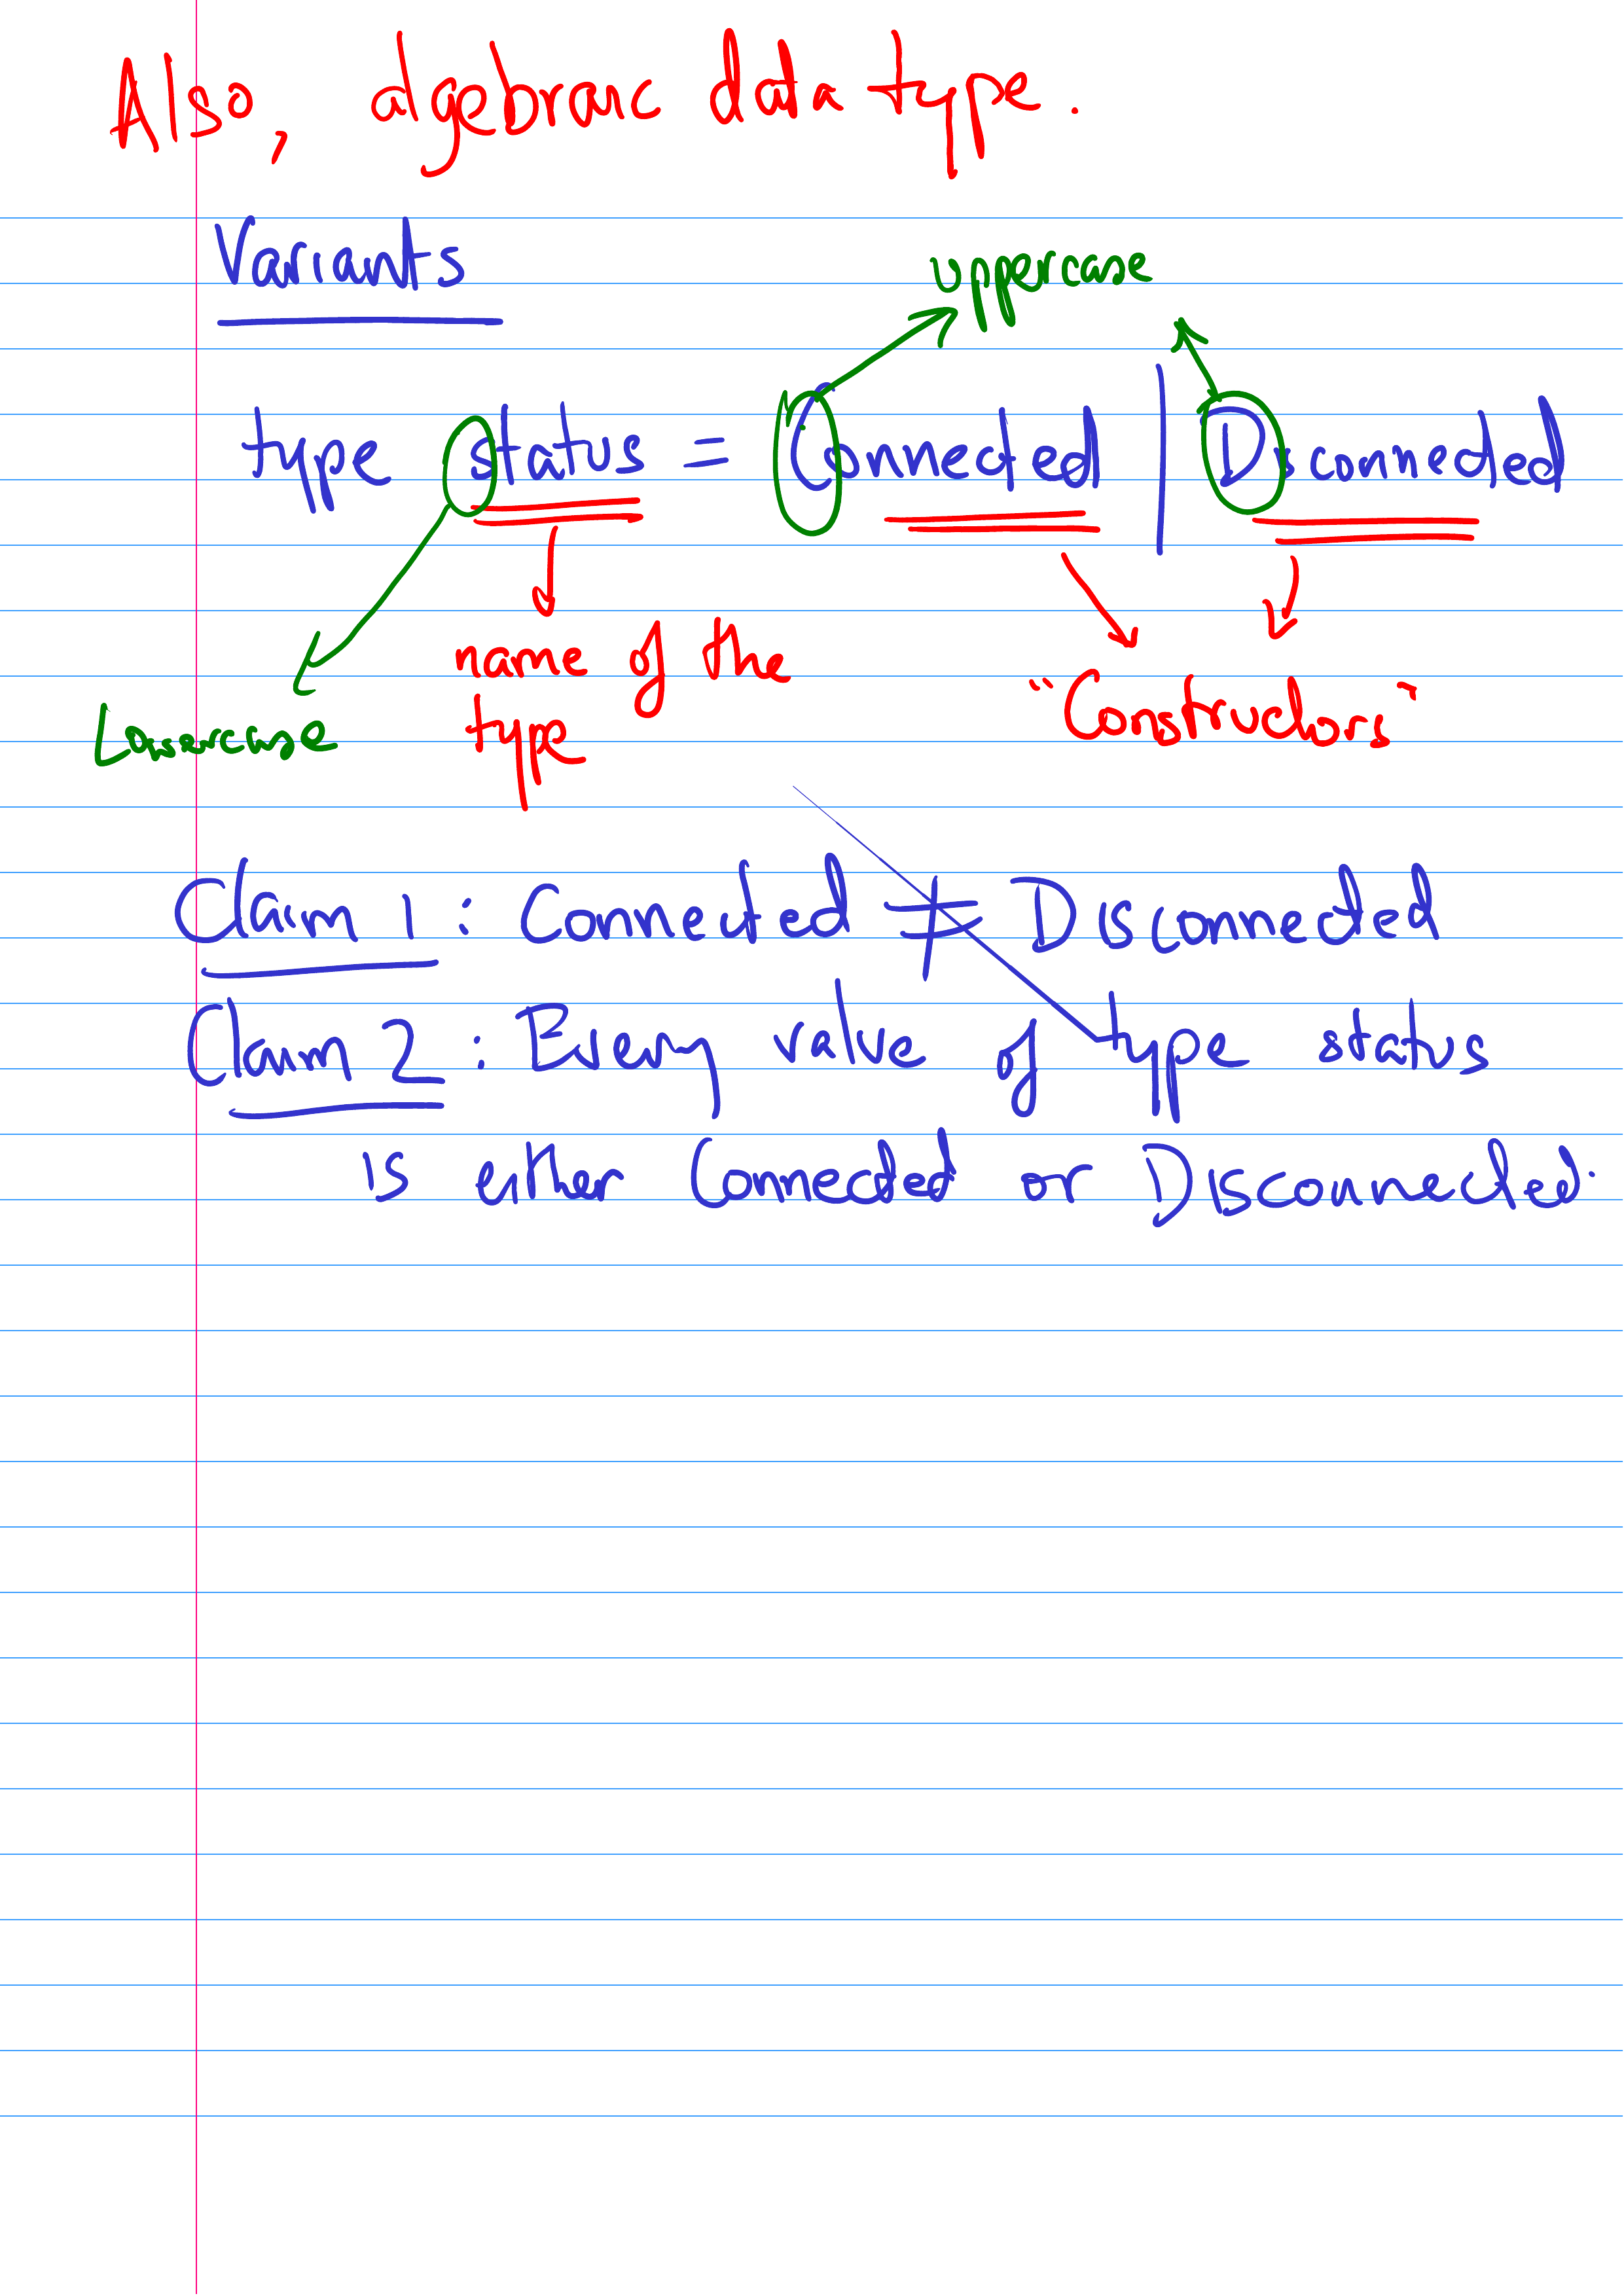 Also, algebraic data type.
Variants
uppercase
type status = Connected | Disconnected
name of the
type
"Constructors"
Lowercase
Claim 1 : Connected ≠ Disconnected
Claim 2 : Every value of type status
is either Connected or Disconnected.